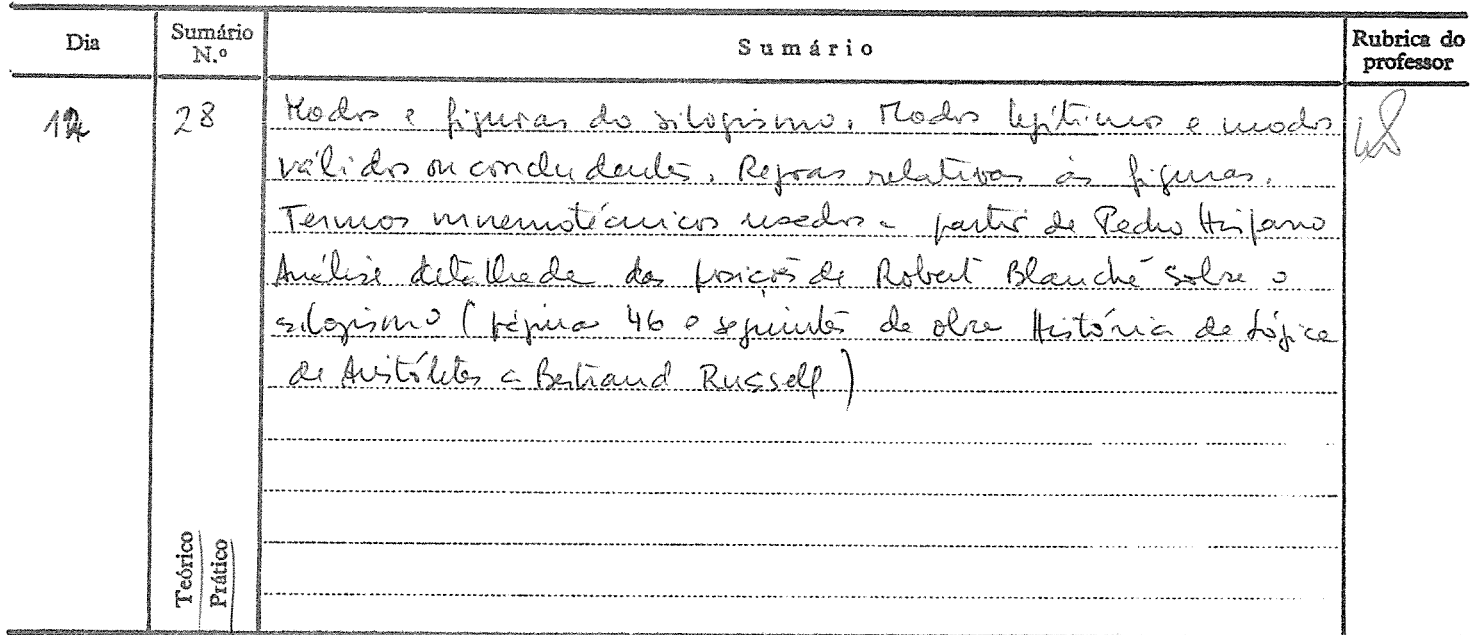 Dia
Sumário N.º
Sumário
Rubrica do professor
28
Modos e figuras do silogismo. Modos legítimos e modos
válidos ou concludentes. Regras relativas às figuras.
Termos mnemotécnicos usados a partir de Pedro Hispano
Análise detalhada das posições de Robert Blanché sobre o
silogismo (página 46 e seguintes da obra História da Lógica
de Aristóteles a Bertrand Russell)
Teórico
Prático